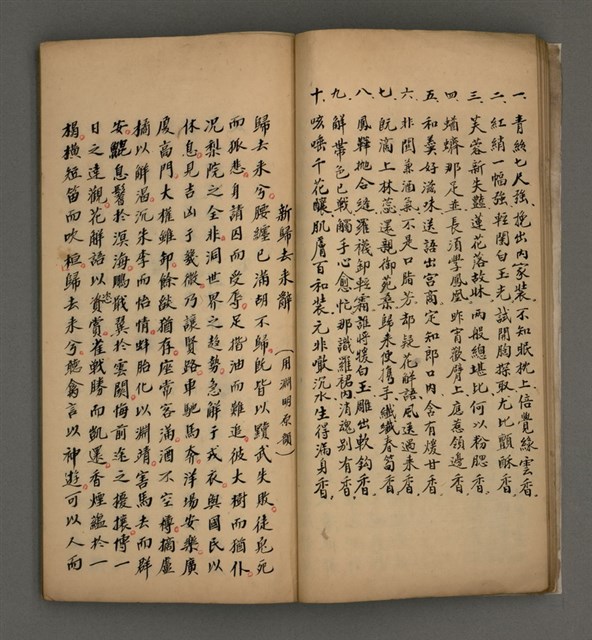 一、青絲七尺強挽出內家裝不知眠枕上倍覺綠雲香
二、紅綃一幅強輕闌白玉光試開胸探取尤比顫酥香
三、芙蓉新失艷蓮花落故妝兩般總堪比何以粉腮香
四、蝤蠐那足並長須學鳳凰昨宵歡臂上應惹領邊香
五、和羹好滋味送語出宮商定知郎口內含有煖甘香
六、非關兼酒氣不是口脂芳却疑花解語風送過來香
七、既滿上林蕊還親御苑桑歸來便携手纖纖春筍香
八、鳳鞾拋合縫羅襪卸輕霜誰將煖白玉雕出軟鈎香
九、解帶色已戰觸手心愈忙那識羅裙內消魂別有香
十、咳唾千花釀肌膚百和裝元非噉沉水生得滿身香
新歸去來辭
（用淵明原韻）
歸去來兮腰纏已滿胡不歸既皆以黷武失敗徒兎死
而狐悲自請因而受歪足揩油而難追彼大樹而猶仆
況梨院之全非洞世界之趨勢急解于戎衣與國民以
休息見吉凶于幾微乃讓賢路車馳馬奔洋場安樂廣
廈高門大權雖卸餘燄猶存座常客滿酒不空樽摘盧
橘以解渴沉朱李而怡情蚌胎化以淵靖害馬去而群
安鯤息鬐於溟海鵬戢翼於雲關悔前途之擾攘博一
日之達觀花解語以賞雀戰勝而凱還香煙繼於一
榻橫短笛而吹桓歸去來兮聽禽言以神遊可以人而